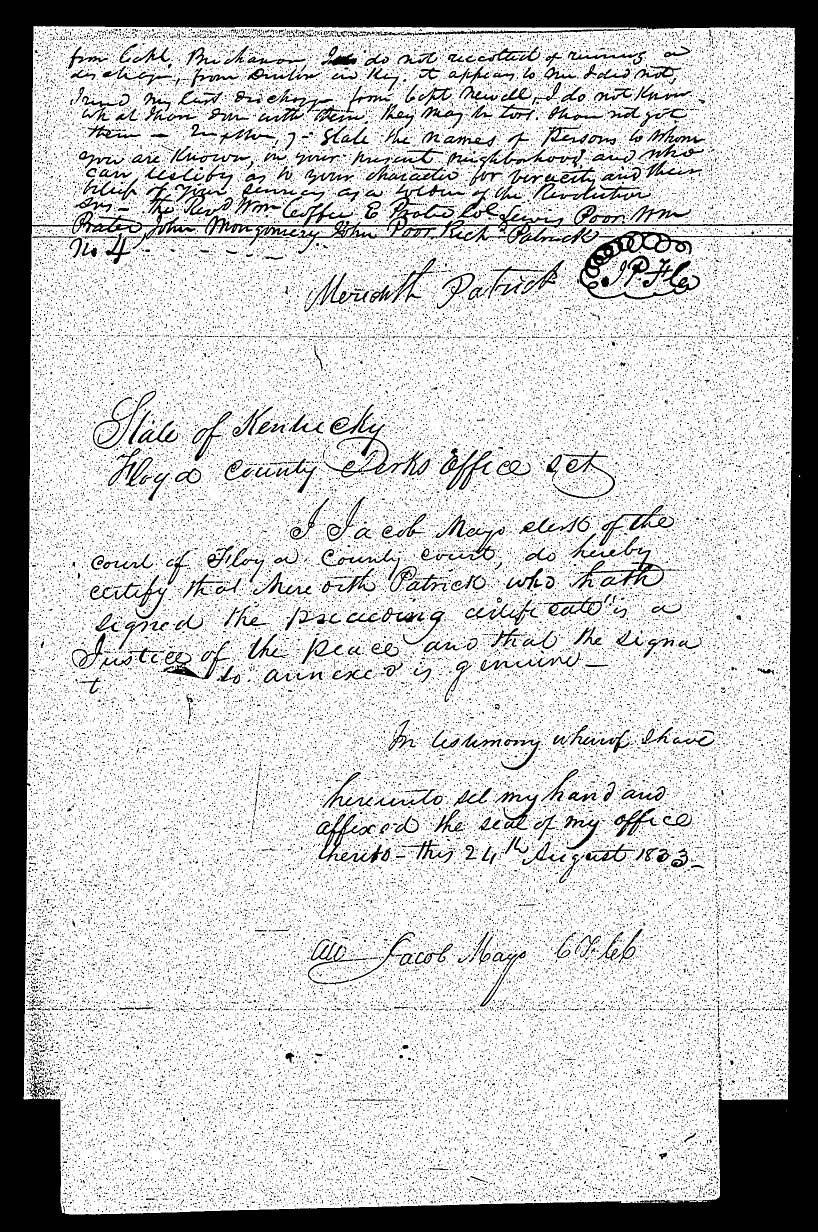 from Capt. Buchanon, I do not recollect of reciving a
discharge, from Dunlow in Key. it appears to me I did not,
I recd my last discharge from Capt Newell, I do not know
what I hav don with them, they may be lost. I hav not got
them — 7 — State the names of Persons to whom
you are known, in your present neighborhood and who
can testify as to your character for veracity and their
belief of your services as a soldier of the Revolution
Ans — the Revd Wm Coffee E Prater Col Lewis Poor Wm
Prater John Montgomery John Poor Richd Patrick
No 4
Meredith Patrick JPFC
State of Kentucky
Floyd County Clerks office Sct
I Jacob Mayo clerk of the
court of Floyd County court, do hereby
certify that Meredith Patrick who hath
signed the preceeding certificate is a
Justice of the peace and that the signa
t to annexed is genuine —
In testimony whereof I have
hereunto set my hand and
affixed the seal of my office
thereto — this 24th August 1833 —
Jacob Mayo CFCC